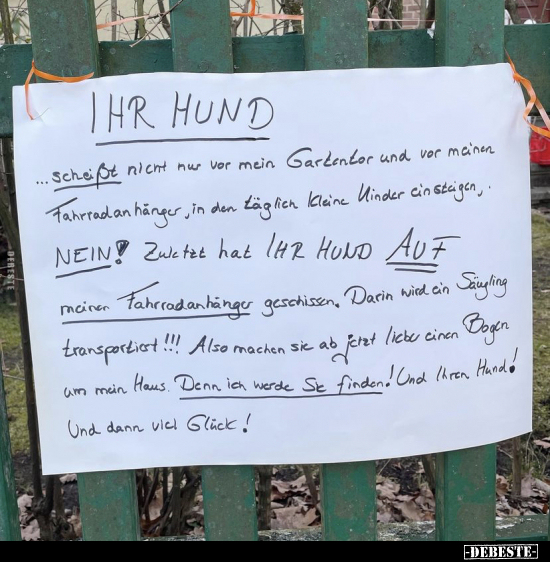 IHR HUND
...scheißt nicht nur vor mein Gartentor und vor meinen
Fahrradanhänger, in den täglich kleine Kinder einsteigen,
NEIN! Zuletzt hat IHR HUND AUF
meinen Fahrradanhänger geschissen. Darin wird ein Säugling
transportiert!!! Also machen sie ab jetzt lieber einen Bogen
um mein Haus. Denn ich werde Sie finden! Und Ihren Hund!
Und dann viel Glück!
DEBESTE
-DEBESTE-